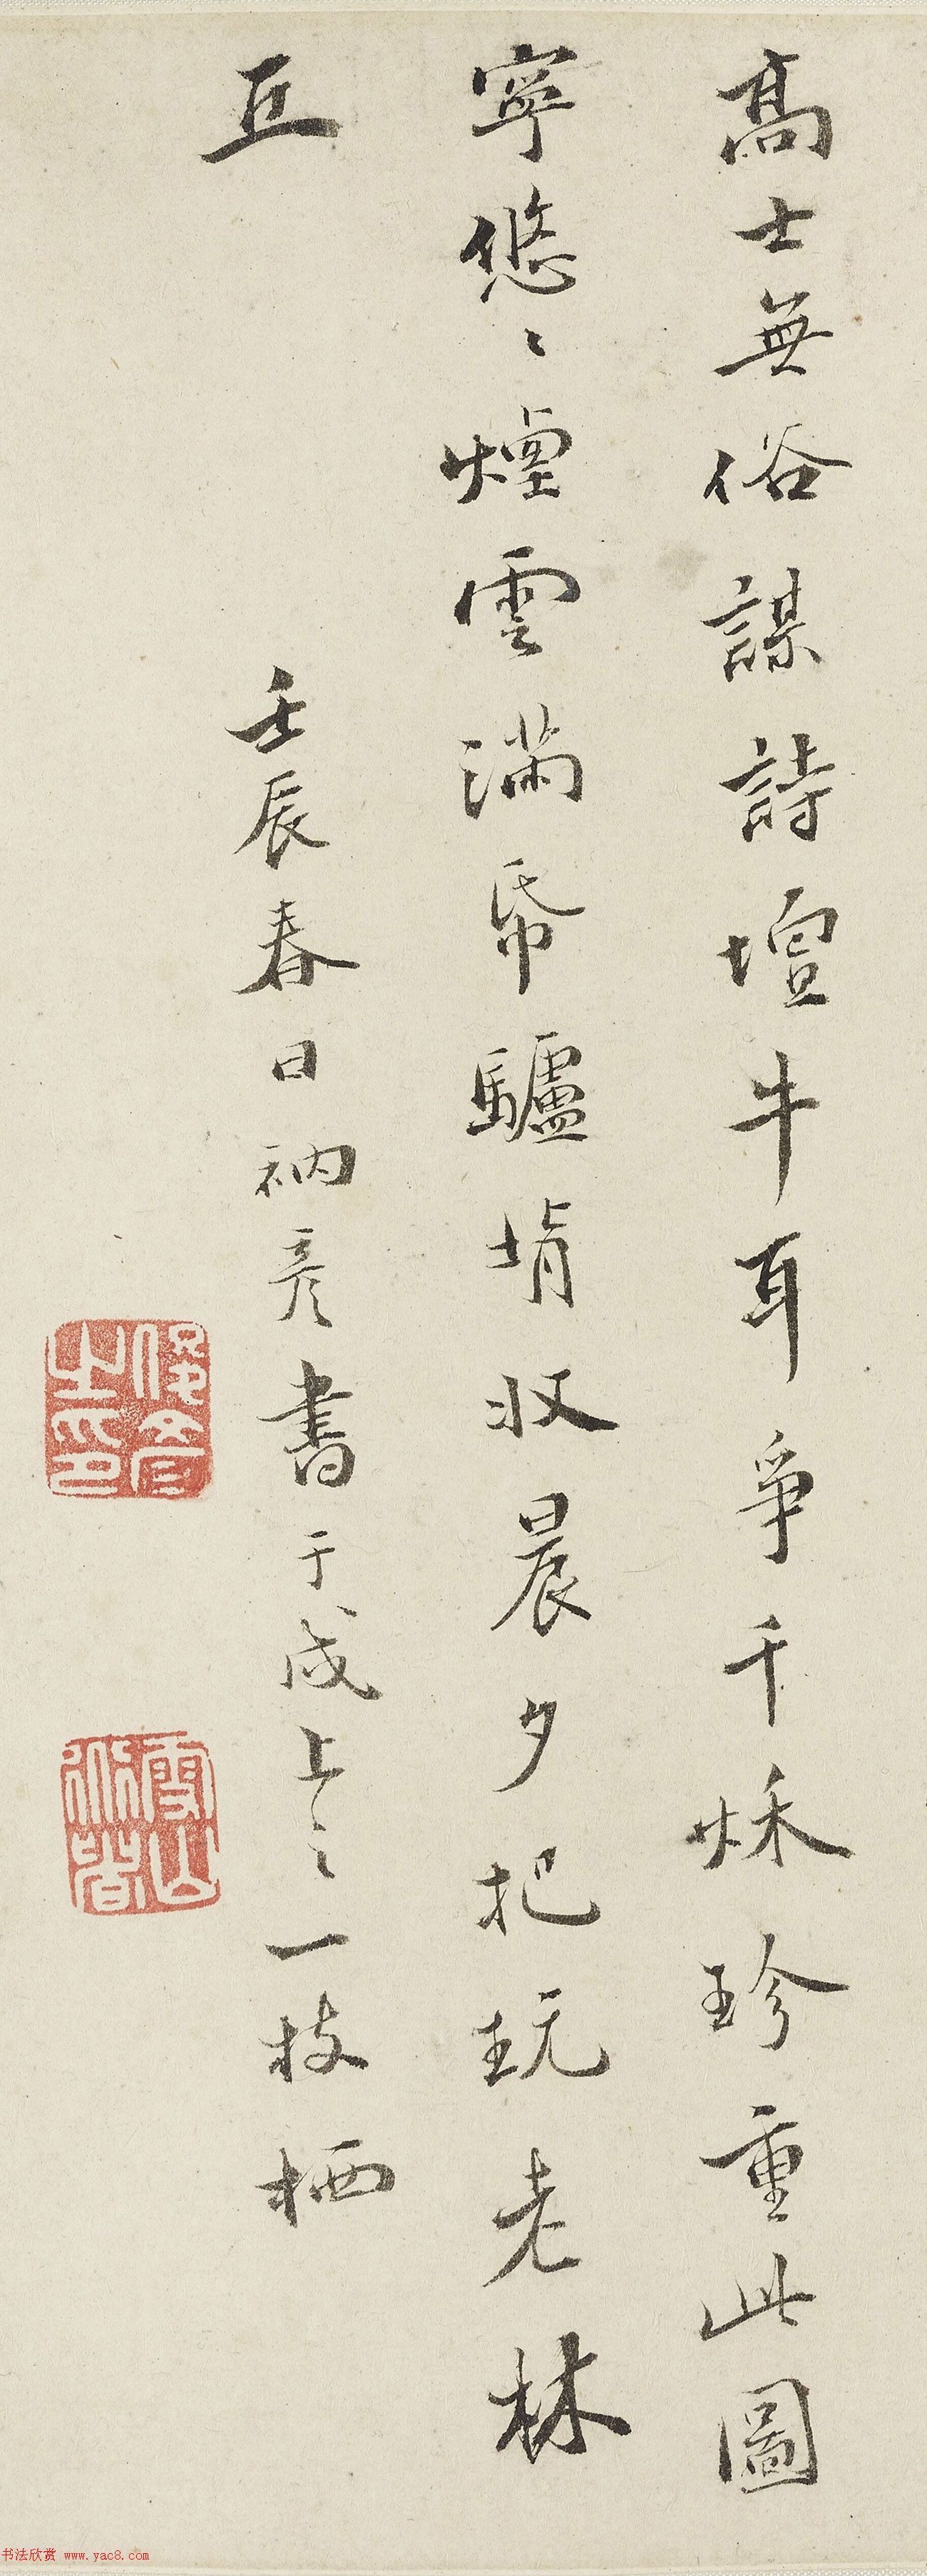 高士無俗謀詩壇牛耳爭千秌珍重此圖
寧悠〻煙雲滿帋驢㫺收晨夕把玩老林
丘
壬辰春日衲彥書于成上之一枝栖
书法欣赏 www.yac8.com